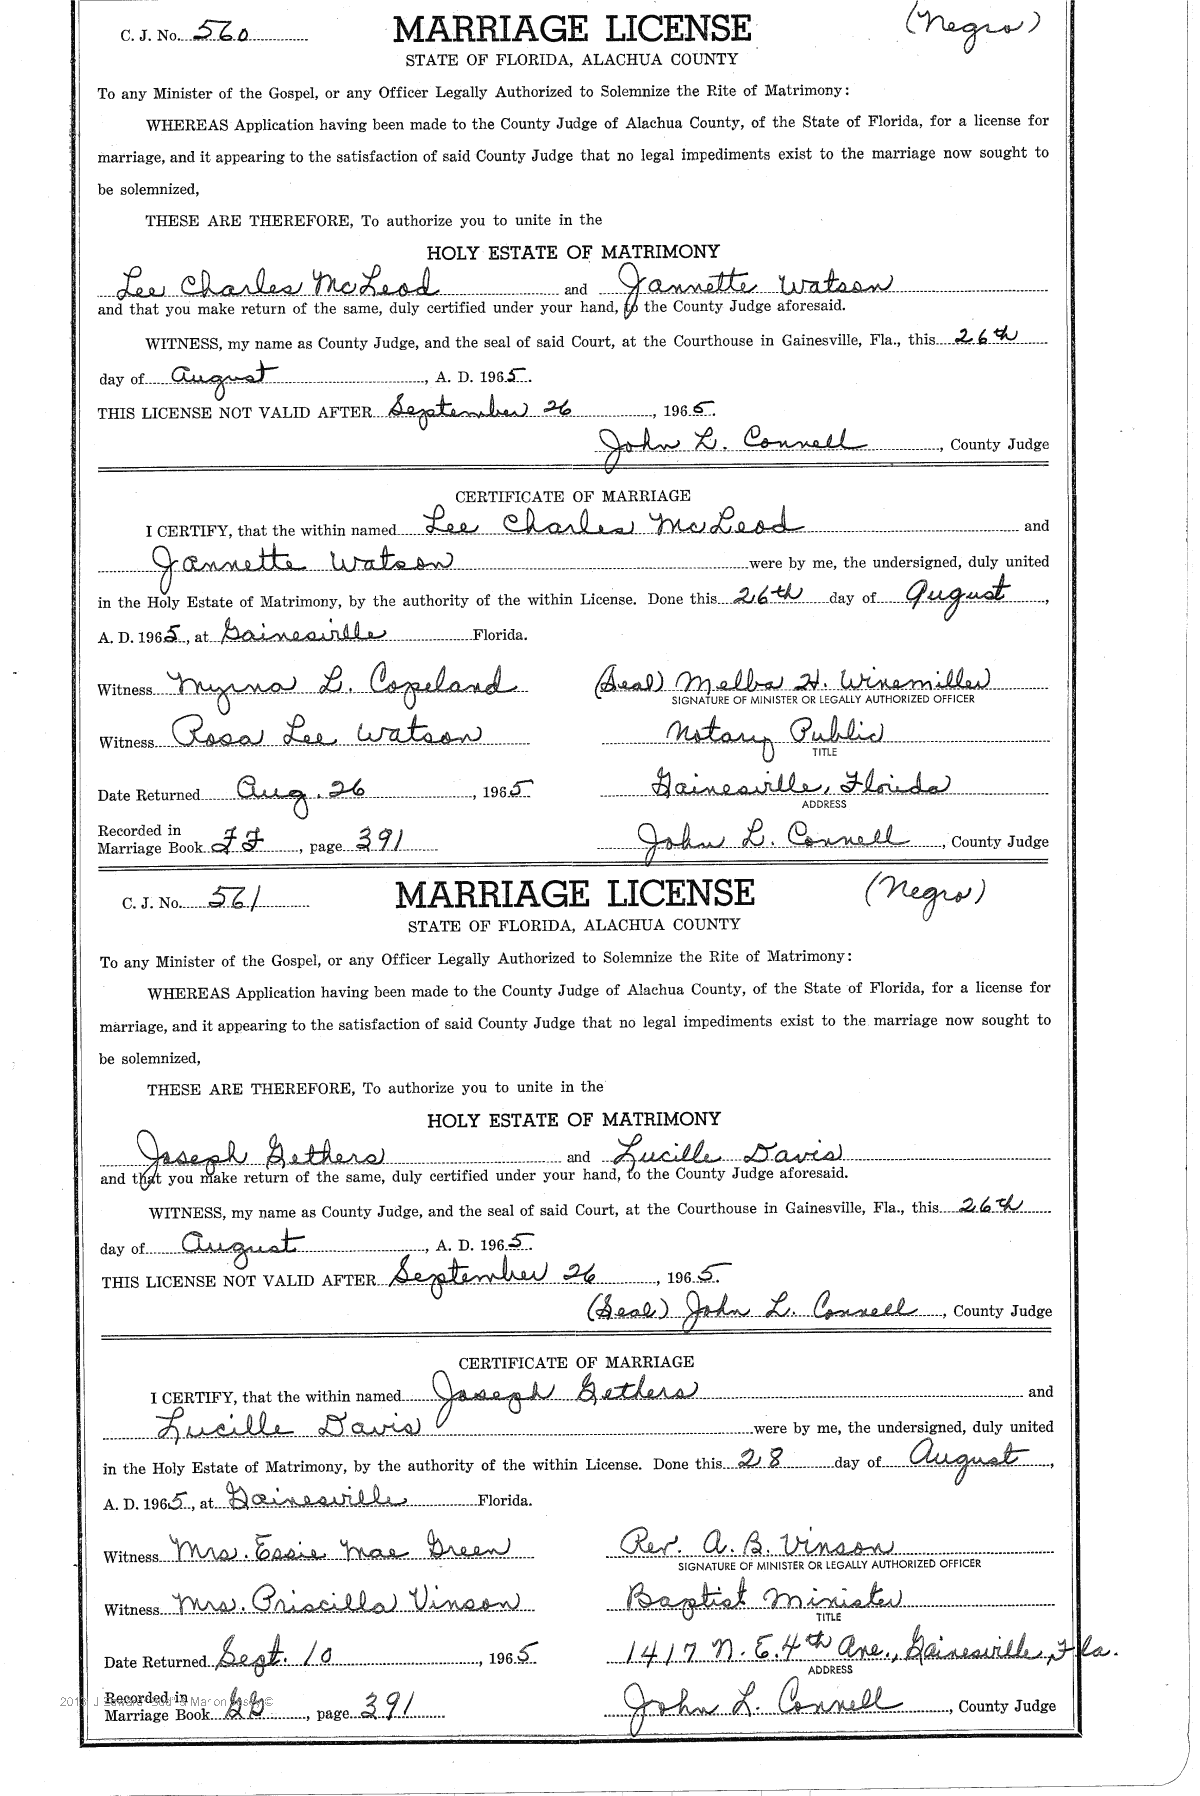 C. J. No. 560 MARRIAGE LICENSE (Negro)
STATE OF FLORIDA, ALACHUA COUNTY
To any Minister of the Gospel, or any Officer Legally Authorized to Solemnize the Rite of Matrimony:
WHEREAS Application having been made to the County Judge of Alachua County, of the State of Florida, for a license for
marriage, and it appearing to the satisfaction of said County Judge that no legal impediments exist to the marriage now sought to
be solemnized,
THESE ARE THEREFORE, To authorize you to unite in the
HOLY ESTATE OF MATRIMONY
Lee Charles McLeod and Jannette Watson
and that you make return of the same, duly certified under your hand, to the County Judge aforesaid.
WITNESS, my name as County Judge, and the seal of said Court, at the Courthouse in Gainesville, Fla., this 26th
day of August, A. D. 1965.
THIS LICENSE NOT VALID AFTER September 26, 1965.
John L. Connell, County Judge
CERTIFICATE OF MARRIAGE
I CERTIFY, that the within named Lee Charles McLeod and
Jannette Watson were by me, the undersigned, duly united
in the Holy Estate of Matrimony, by the authority of the within License. Done this 26th day of August,
A. D. 1965, at Gainesville Florida.
Witness Myrna L. Copeland (Seal) Melba H. Winemiller
SIGNATURE OF MINISTER OR LEGALLY AUTHORIZED OFFICER
Witness Rosa Lee Watson Notary Public
TITLE
Date Returned Aug. 26, 1965 Gainesville, Florida
ADDRESS
Recorded in
Marriage Book, page 391 John L. Connell, County Judge
C. J. No. 561 MARRIAGE LICENSE (Negro)
STATE OF FLORIDA, ALACHUA COUNTY
To any Minister of the Gospel, or any Officer Legally Authorized to Solemnize the Rite of Matrimony:
WHEREAS Application having been made to the County Judge of Alachua County, of the State of Florida, for a license for
marriage, and it appearing to the satisfaction of said County Judge that no legal impediments exist to the marriage now sought to
be solemnized,
THESE ARE THEREFORE, To authorize you to unite in the
HOLY ESTATE OF MATRIMONY
Joseph Gethers and Lucille Davis
and that you make return of the same, duly certified under your hand, to the County Judge aforesaid.
WITNESS, my name as County Judge, and the seal of said Court, at the Courthouse in Gainesville, Fla., this 26th
day of August, A. D. 1965.
THIS LICENSE NOT VALID AFTER September 26, 1965.
(Seal) John L. Connell, County Judge
CERTIFICATE OF MARRIAGE
I CERTIFY, that the within named Joseph Gethers and
Lucille Davis were by me, the undersigned, duly united
in the Holy Estate of Matrimony, by the authority of the within License. Done this 28 day of August,
A. D. 1965, at Gainesville Florida.
Witness Mrs. Essie Mae Green Rev. A. B. Vinson
SIGNATURE OF MINISTER OR LEGALLY AUTHORIZED OFFICER
Witness Mrs. Priscilla Vinson Baptist Minister
TITLE
Date Returned Sept. 10, 1965 1417 N. E. 4th Ave., Gainesville, Fla.
ADDRESS
Recorded in
Marriage Book GG, page 391 John L. Connell, County Judge